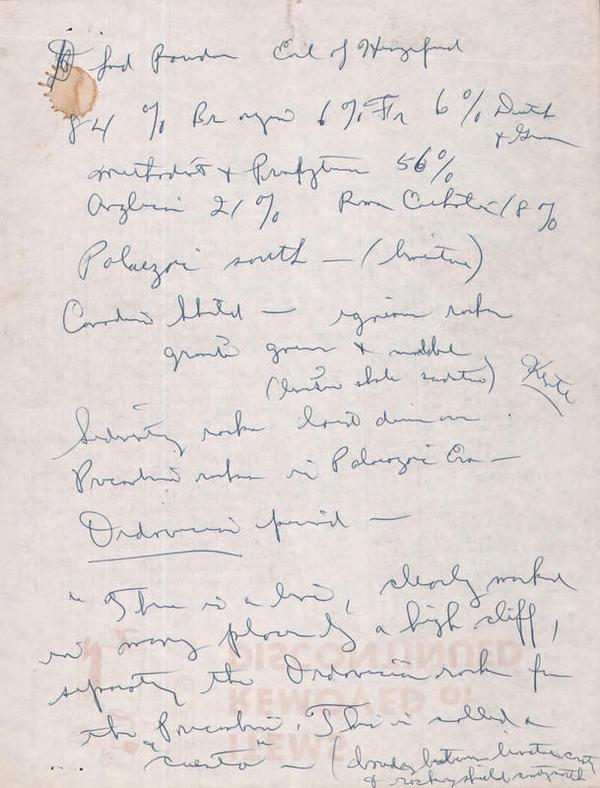 Lord Rawdon Earl of Hungerford
84 % Br origin 6 % Fr 6 % Dutch
& Germ
Methodist & Presbyterian 56 %
Anglican 21 % Rom Catholic 18 %
Palaezoic south — (limestone)
Canadian Shield — igneous rocks
granite gneiss & marble
(limestone shale sandstone)
Sedimentary rocks laid down over
Precambrian rocks in Palaeozoic Era —
Ordovician period —
" There is a line, clearly marked
in many places by a high cliff,
separating the Ordovician rocks from
the Precambrian. This is called a
"cuesta" — (boundary between limestone
& rocky shield
DISCONTINUED
REMOVED or